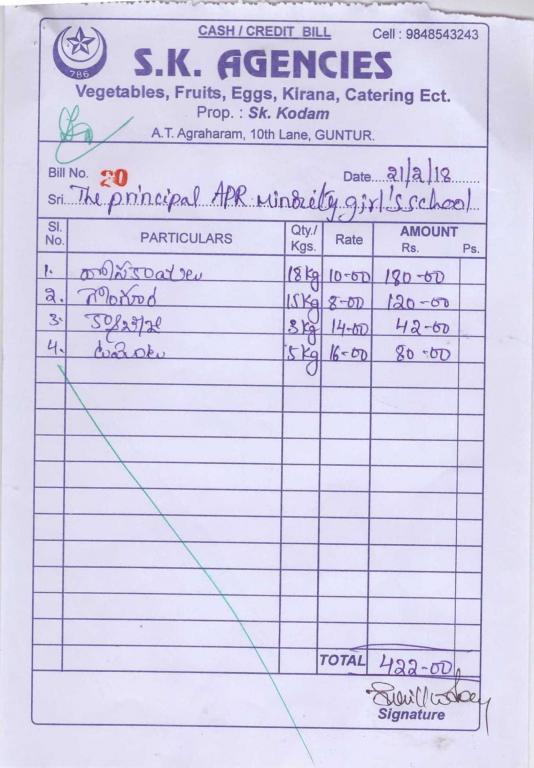 CASH / CREDIT BILL Cell : 9848543243
786
S.K. AGENCIES
Vegetables, Fruits, Eggs, Kirana, Catering Ect.
Prop. : Sk. Kodam
A.T. Agraharam, 10th Lane, GUNTUR.
Bill No. 20 Date 21/2/18
Sri. The principal APR Minority girl's school
Sl. No. PARTICULARS Qty./ Kgs. Rate AMOUNT Rs. Ps.
1. 18 Kg 10-00 180-00
2. గోంగూర 15 Kg 8-00 120-00
3. 3 Kg 14-00 42-00
4. 5 Kg 16-00 80-00
TOTAL 422-00
Signature